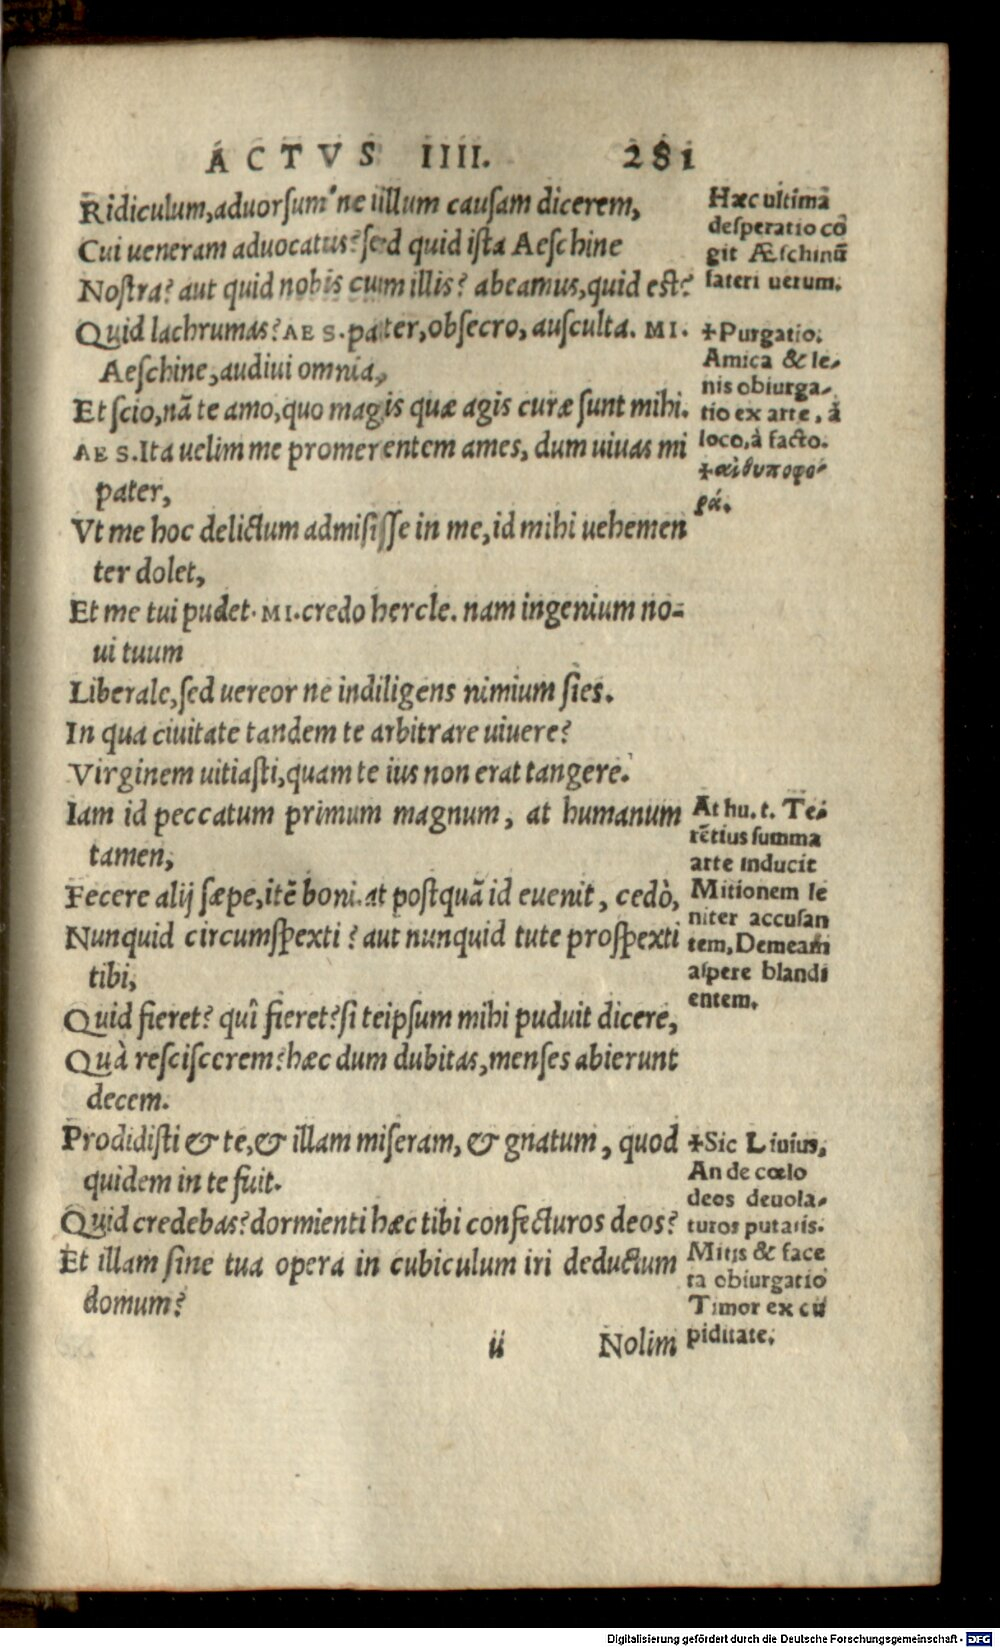 ACTVS IIII. 281
Ridiculum, aduorsum'ne illum causam dicerem,
Cui ueneram aduocatus? sed quid ista Aeschine
Nostra? aut quid nobis cum illis? abeamus, quid est?
Quid lachrumas? AES. pater, obsecro, ausculta. MI.
Aeschine, audiui omnia,
Et scio, nã te amo, quo magis quæ agis curæ sunt mihi.
AES. Ita uelim me promerentem ames, dum uiuas mi
pater,
Vt me hoc delictum admisisse in me, id mihi uehemen
ter dolet,
Et me tui pudet. MI. credo hercle. nam ingenium no-
ui tuum
Liberale, sed uereor ne indiligens nimium sies.
In qua ciuitate tandem te arbitrare uiuere?
Virginem uitiasti, quam te ius non erat tangere.
Iam id peccatum primum magnum, at humanum
tamen,
Fecere alij sæpe, itẽ boni. at postquã id euenit, cedò,
Nunquid circumspexti? aut nunquid tute prospexti
tibi,
Quid fieret? quî fieret? si teipsum mihi puduit dicere,
Quà resciscerem? hæc dum dubitas, menses abierunt
decem.
Prodidisti & te, & illam miseram, & gnatum, quod
quidem in te fuit.
Quid credebas? dormienti hæc tibi confecturos deos?
Et illam sine tua opera in cubiculum iri deductum
domum?
ii Nolim
Hæc ultimã
desperatio cõ
git Æschinũ
fateri uerum.
+Purgatio.
Amica & le-
nis obiurga-
tio ex arte, à
loco, à facto.
+ἀνθυποφο-
ρά.
At hu. t. Te-
rẽtius summa
arte inducit
Mitionem le
niter accusan
tem, Demeam
aspere blandi
entem.
+Sic Liuius,
An de cœlo
deos deuola-
turos putatis.
Mitis & face
ta obiurgatio
Timor ex cu
piditate.
Digitalisierung gefördert durch die Deutsche Forschungsgemeinschaft - DFG